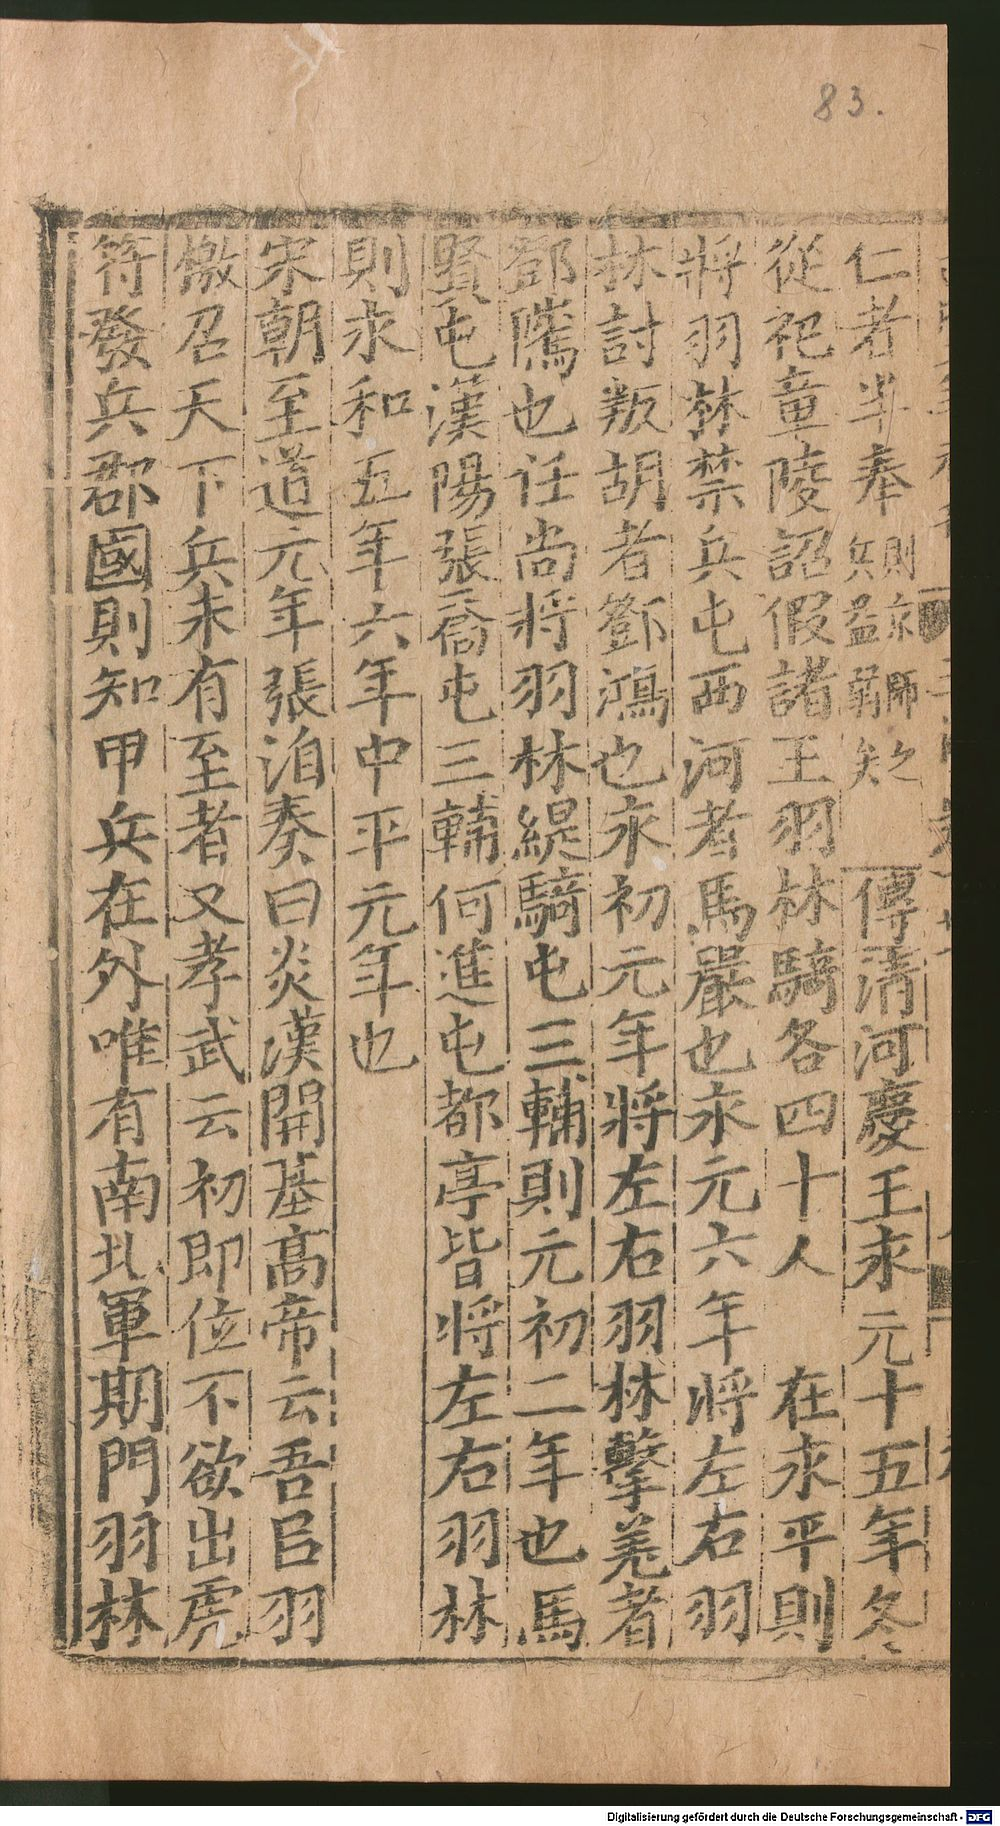 83.
仁者半奉則兵京益師鞠之矢 傳淸河慶王永元十五年冬
從祀章陵詔假諸王羽林騎各四十人 在永平則
將羽林禁兵屯西河者馬嚴也永元六年將左右羽
林討叛胡者鄧鴻也永初元年將左右羽林擊羌者
鄧騭也任尚將羽林緹騎屯三輔則元初二年也馬
賢屯漢陽張喬屯三輔何進屯都亭皆將左右羽林
則永和五年六年中平元年也
宋朝至道元年張洎奏曰炎漢開基高帝云吾㠯羽
檄召天下兵未有至者又孝武云初即位不欲出虎
符發兵郡國則知甲兵在外唯有南北軍期門羽林
Digitalisierung gefördert durch die Deutsche Forschungsgemeinschaft - DFG